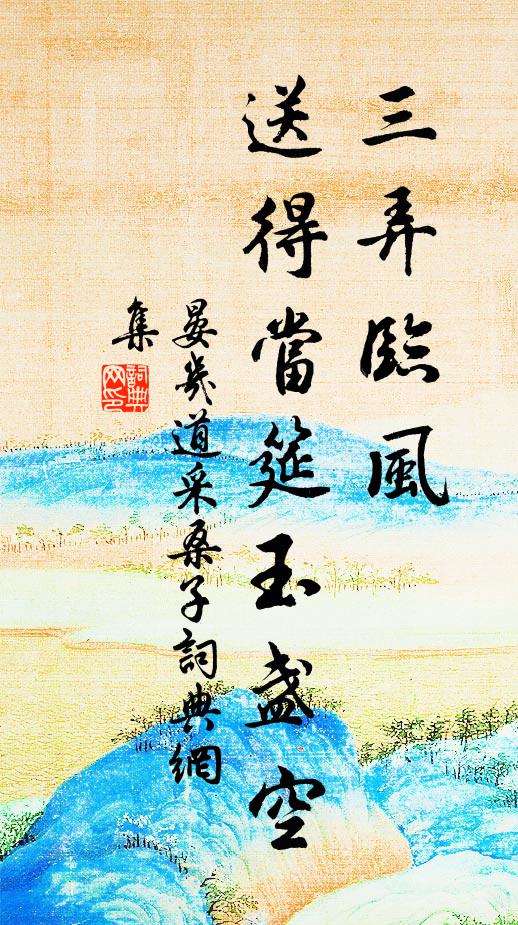 三弄臨風
送得當筵玉盞空
晏幾道采桑子詞典網
集
詞典
网印